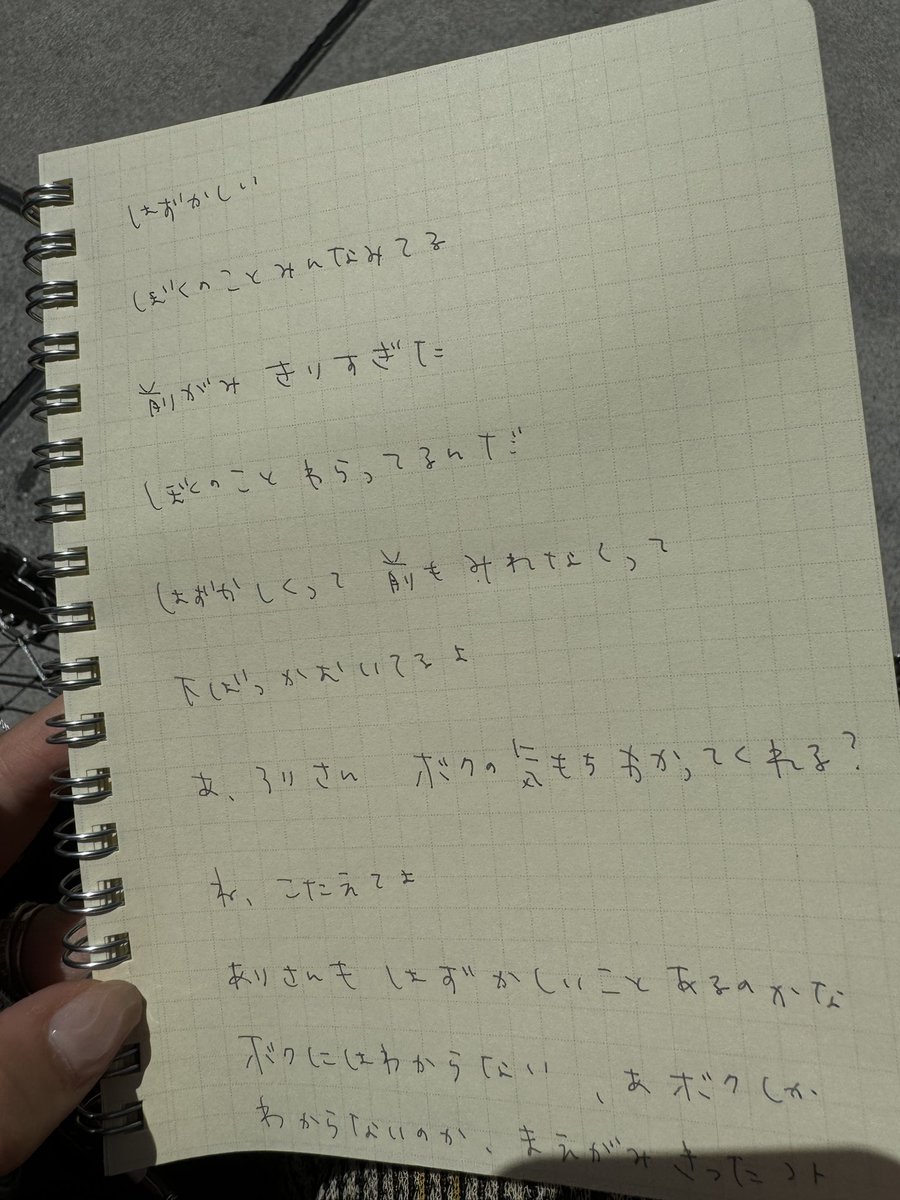 はずかしい
ぼくのことみんなみてる
前がみ きりすぎた
ぼくのこと わらってるんだ
はずかしくって 前もみれなくって
下ばっかむいてるよ
あ、アリさん ボクの気もちわかってくれる?
ね、こたえてよ
ありさんも はずかしいこと あるのかな
ボクにはわからない、あ ボクしか
わからないのか、まえがみ きったコト